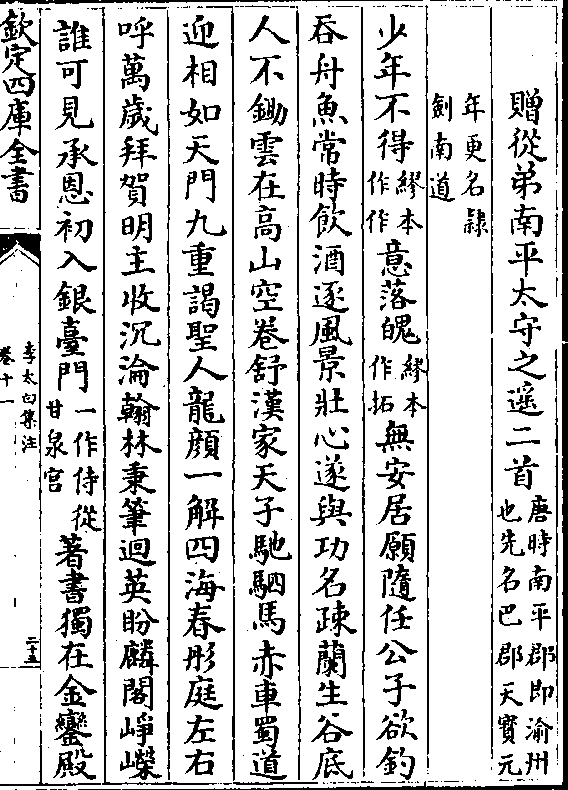 贈從弟南平太守之遥二首唐時南平郡即渝州也先名巴郡天寶元
年更名隸劍南道
少年不得繆本作作意落魄繆本作拓無安居願隨任公子欲釣
吞舟魚常時飲酒逐風景壯心遂與功名疎蘭生谷底
人不鋤雲在高山空卷舒漢家天子馳駟馬赤車蜀道
迎相如天門九重謁聖人龍顔一解四海春彤庭左右
呼萬歲拜賀明主收沉淪翰林秉筆迴英盼麟閣崢嶸
誰可見承恩初入銀臺門一作侍從甘泉宫著書獨在金鑾殿
欽定四庫全書
李太白集注
卷十一
二十五